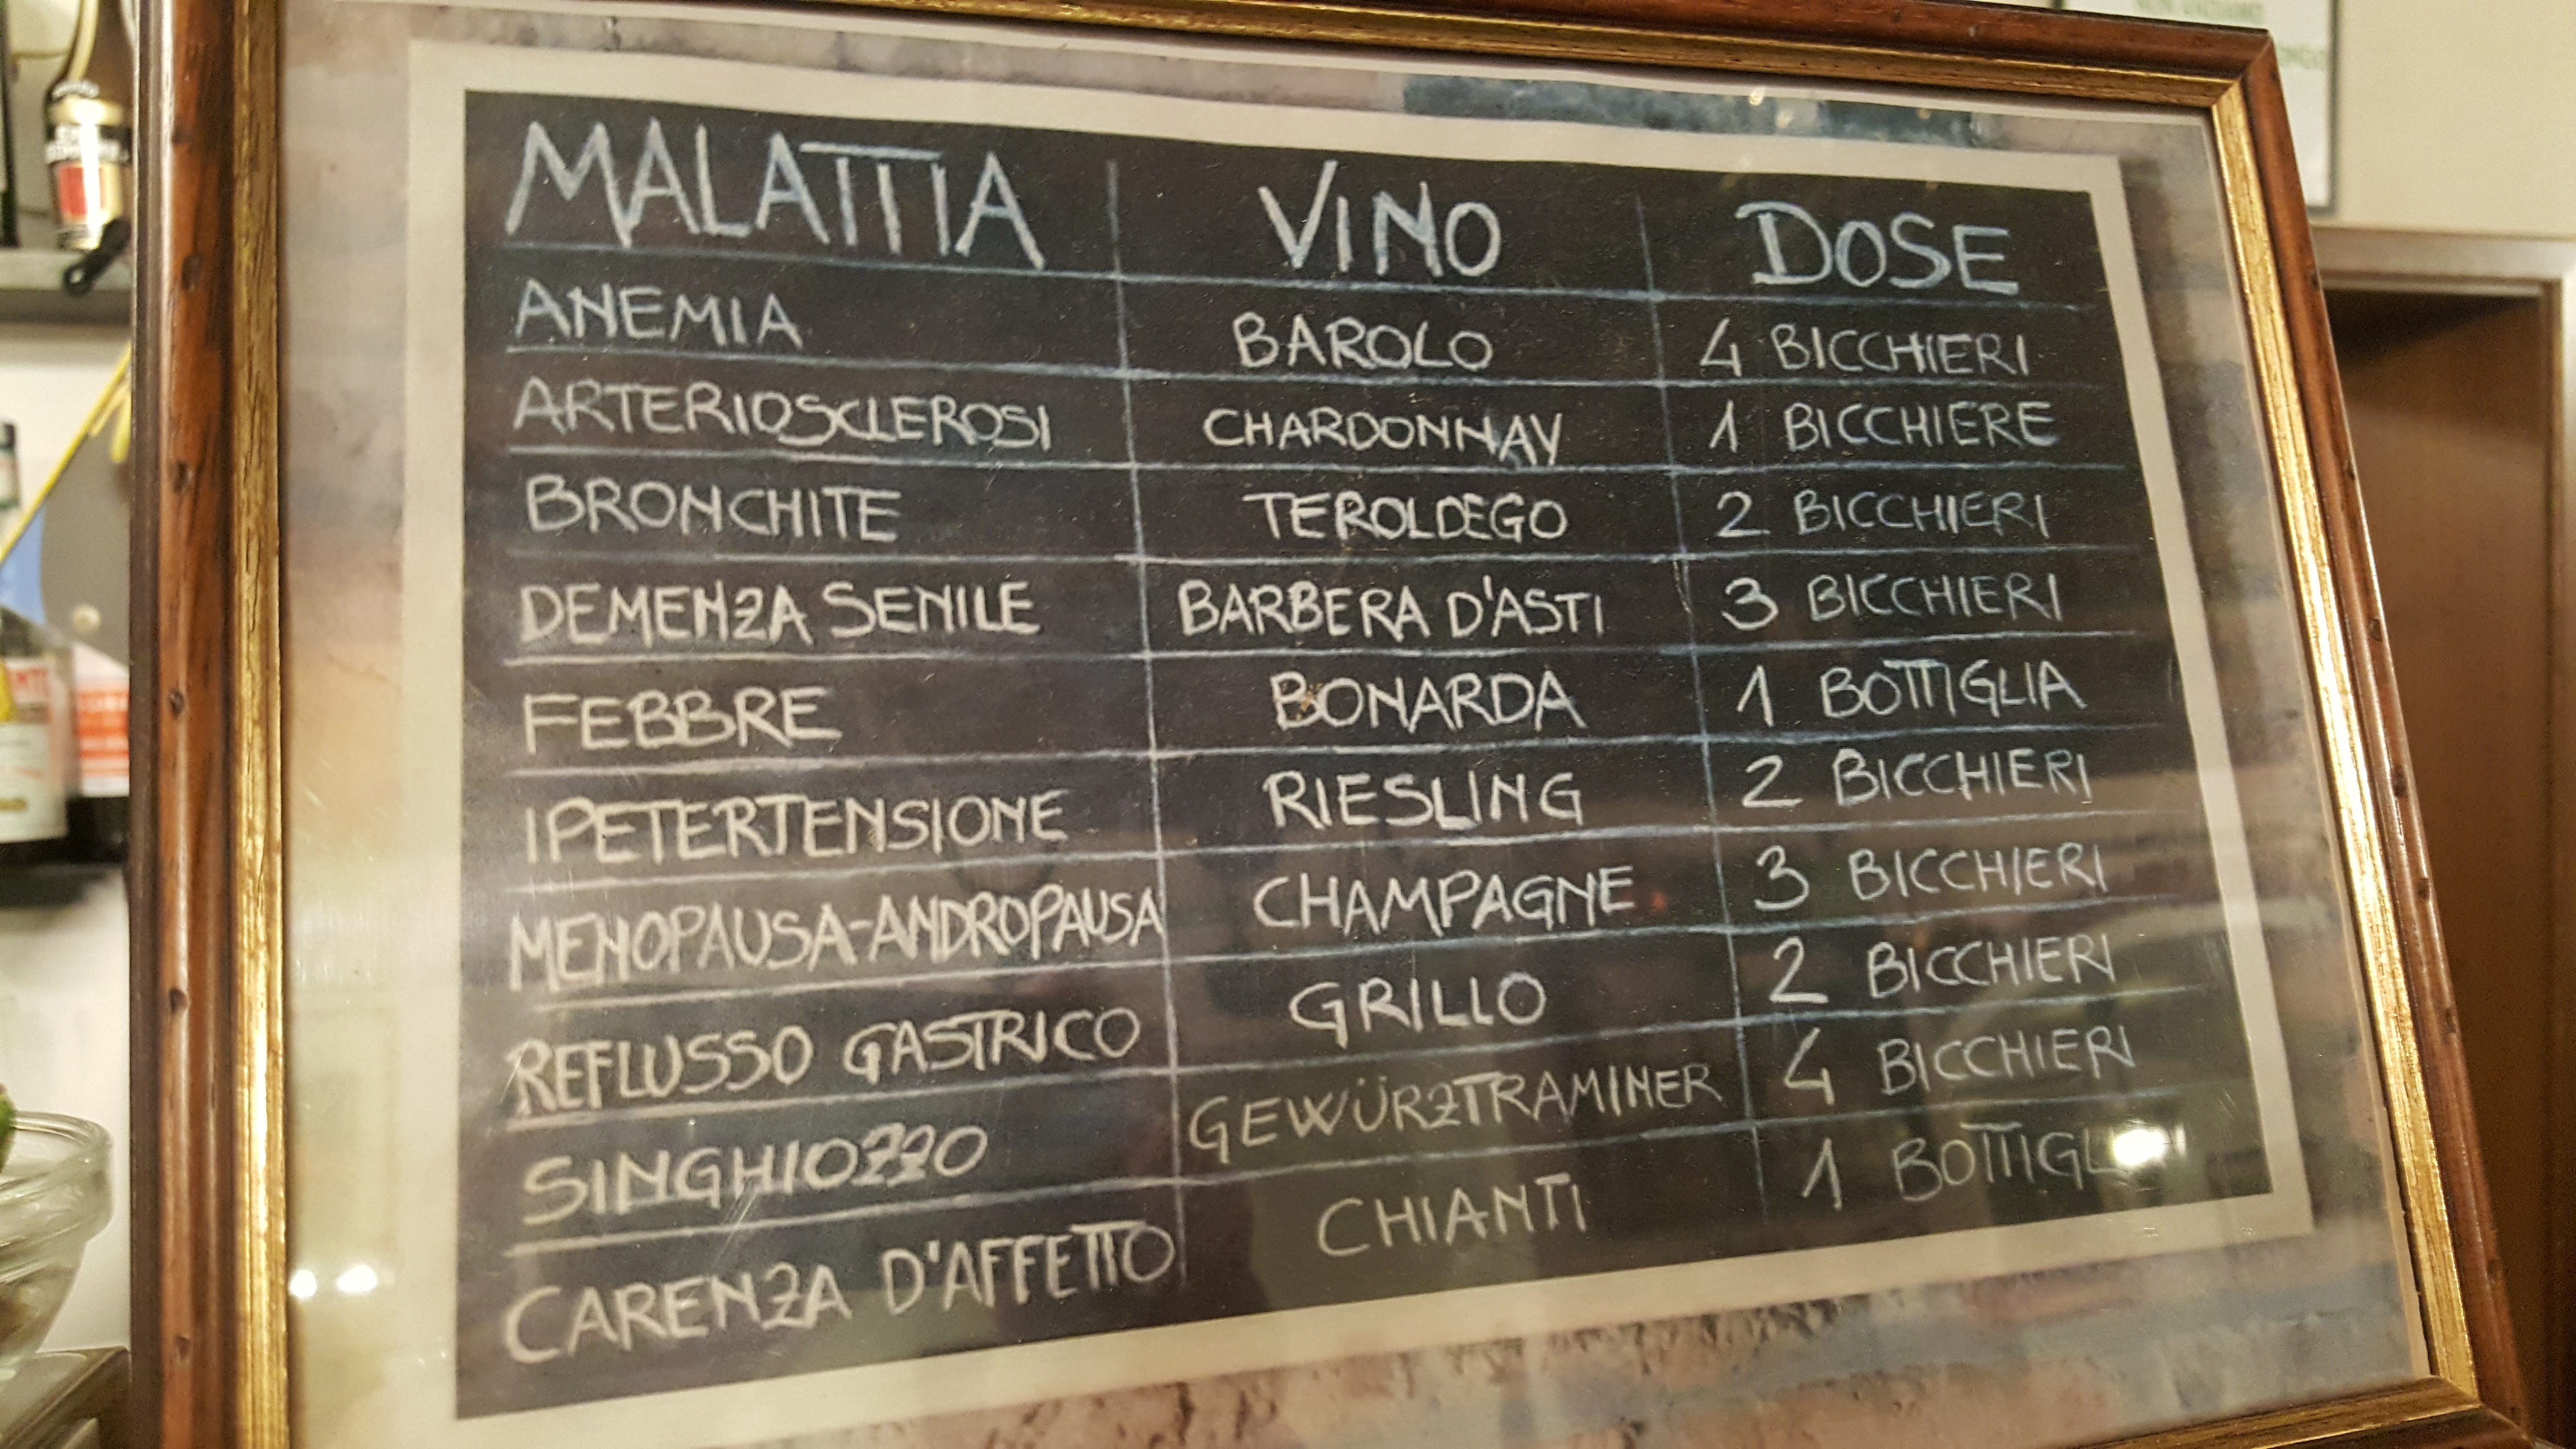 MALATTIA VINO DOSE
ANEMIA BAROLO 4 BICCHIERI
ARTERIOSCLEROSI CHARDONNAY 1 BICCHIERE
BRONCHITE TEROLDEGO 2 BICCHIERI
DEMENZA SENILE BARBERA D'ASTI 3 BICCHIERI
FEBBRE BONARDA 1 BOTTIGLIA
IPETERTENSIONE RIESLING 2 BICCHIERI
MENOPAUSA-ANDROPAUSA CHAMPAGNE 3 BICCHIERI
REFLUSSO GASTRICO GRILLO 2 BICCHIERI
SINGHIOZZO GEWÜRZTRAMINER 4 BICCHIERI
CARENZA D'AFFETTO CHIANTI 1